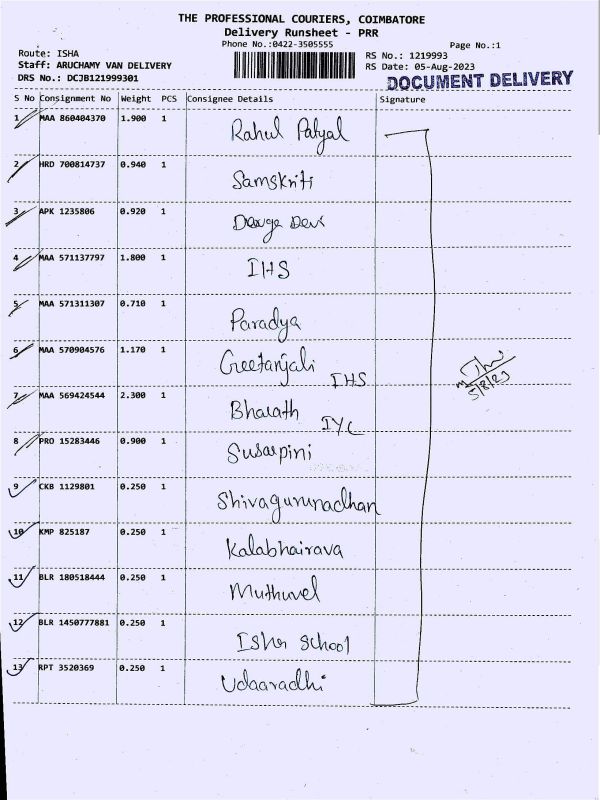 THE PROFESSIONAL COURIERS, COIMBATORE
Delivery Runsheet - PRR
Phone No.:0422-3505555
Page No.:1
Route: ISHA
Staff: ARUCHAMY VAN DELIVERY
DRS No.: DCJB121999301
RS No.: 1219993
RS Date: 05-Aug-2023
DOCUMENT DELIVERY
S No Consignment No Weight PCS Consignee Details Signature
1 MAA 860404370 1.900 1 Rahul Patyal
2 HRD 700814737 0.940 1 Samskriti
3 APK 1235806 0.920 1 Devi
4 MAA 571137797 1.800 1 IHS
5 MAA 571311307 0.710 1 Paradya
6 MAA 570904576 1.170 1 Geetanjali IHS
7 MAA 569424544 2.300 1 Bharath IYC
8 PRO 15283446 0.900 1 Susarpini
9 CKB 1129801 0.250 1 Shivagurunadhan
10 KMP 825187 0.250 1 Kalabhairava
11 BLR 180518444 0.250 1 Muthuvel
12 BLR 1450777881 0.250 1 Isha School
13 RPT 3520369 0.250 1 Udaaradhi
5/8/23